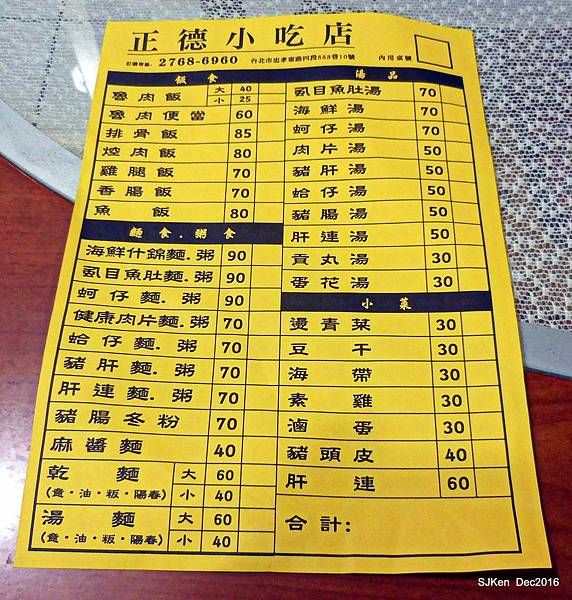 正德小吃店
訂購專線: 2768-6960 台北市忠孝東路四段553巷10號 內用桌號
飯食
魯肉飯 大 40
小 25
魯肉便當 60
排骨飯 85
焢肉飯 80
雞腿飯 70
香腸飯 70
魚飯 80
麵食.粥食
海鮮什錦麵.粥 90
虱目魚肚麵.粥 90
蚵仔麵.粥 90
健康肉片麵.粥 70
蛤仔麵.粥 70
豬肝麵.粥 70
肝連麵.粥 70
豬腸冬粉 70
麻醬麵 40
乾麵 大 60
(意·油·粄·陽春) 小 40
湯麵 大 60
(意·油·粄·陽春) 小 40
湯品
虱目魚肚湯 70
海鮮湯 70
蚵仔湯 70
肉片湯 50
豬肝湯 50
蛤仔湯 50
豬腸湯 50
肝連湯 50
貢丸湯 30
蛋花湯 30
小菜
燙青菜 30
豆干 30
海帶 30
素雞 30
滷蛋 30
豬頭皮 40
肝連 60
合計:
SJKen Dec2016